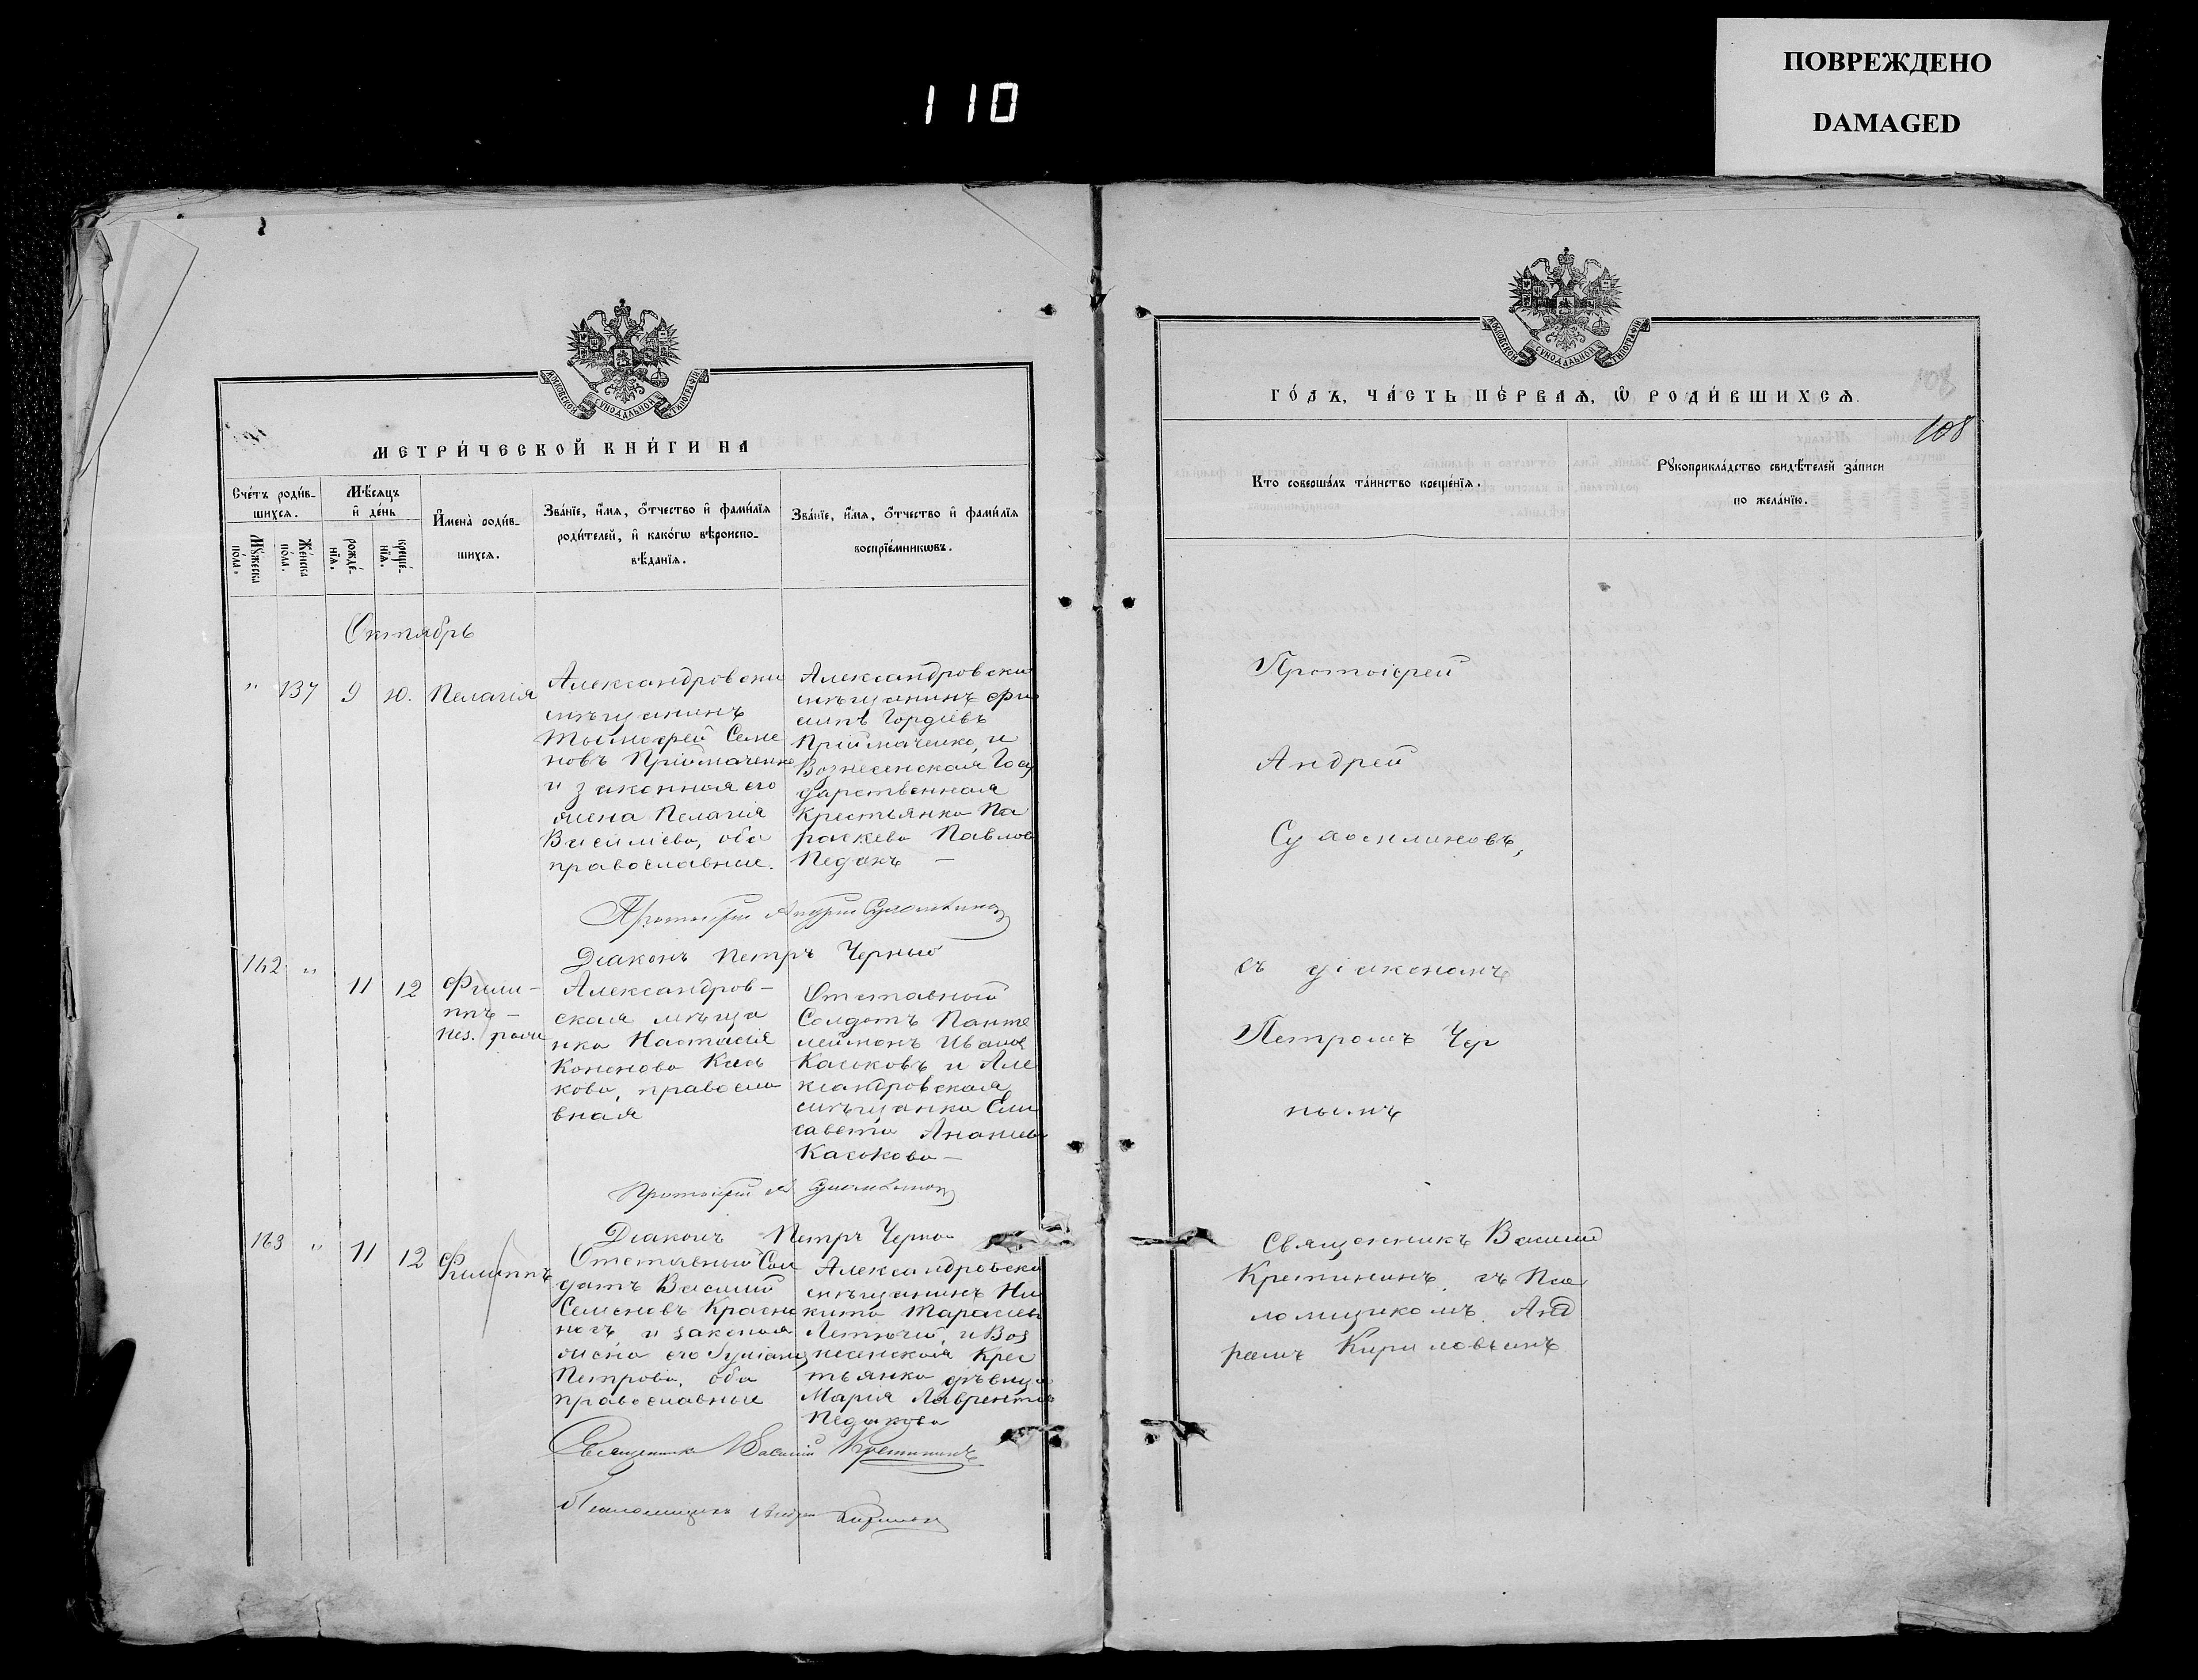 ПОВРЕЖДЕНО
DAMAGED
110
МОСКОВСКОЙ СѴНОДАЛЬНОЙ ТИПОГРАФІИ
МЕТРИ́ЧЕСКОЙ КНИ́ГИ НА
Сче́тъ роди́в-
шихся.
Мꙋ́жеска
по́ла.
Же́нска
пола.
Мѣ́сяцъ
и҆ де́нь
рожде́-
нїя.
креще́-
нїя.
И҆мена̀ роди́в-
шихся.
Зва́нїе, и҆́мя, ѻ҆́тчество и҆ фами́лїя
роди́телей, и҆ како́гѡ вѣроиспо-
вѣ́данїя.
Зва́нїе, и҆́мя, ѻ҆́тчество и҆ фами́лїя
воспрїе́мникѡвъ.
Октябрь
" 137 9 10. Пелагія
Александровски
мѣщанинъ
Тымофей Семе
новъ Пріймаченко
и законная его
жена Пелагія
Василіева, оба
православные.
Александровски
мѣщанинъ Фи
липъ Гордіевъ
Пріймаченко, и
Вознесенская Госу
дарственная
Крестьянка Па
раскева Павлова
Педакъ —
Протоіерей Андрей Сухомлиновъ
Діаконъ Петръ Черный
142 " 11 12 Фили-
ппъ —
Александров-
ская мѣща
нка Настасія
Кононова Кась
кова, правосла
вная
Отставный
Солдатъ Панте
леймонъ Иванов
Каськовъ и Але
ксандровская
мѣщанка Ели
савета Ананіева
Каськова —
Протоіерей Ан Сухомлиновъ
Діаконъ Петръ Черный
143 " 11 12 Филиппъ
Отставный Сол
датъ Василій
Семеновъ Красно
и законная
жена его
Петрова, оба
православные
Александровски
мѣщанинъ Ни
кита Тарасіев
Летючій, и Воз
несенская Крес
тьянка дѣвица
Марія Лаврентіева
Педакова
Священникъ Василій Крестининъ
Псаломщикъ Андрей Кириловъ
МОСКОВСКОЙ СѴНОДАЛЬНОЙ ТИПОГРАФІИ
ГО́ДЪ, ЧА́СТЬ ПЕ́РВАѦ, Ѡ҆ РОДИ́ВШИХСѦ.
108
Кто соверша́лъ та́инство креще́нїя.
Рꙋкоприкла́дство свидѣ́телей за́писи
по жела́нїю.
Протоіерей
Андрей
Сухомлиновъ,
съ діакономъ
Петромъ Чер
нымъ
Священникъ Василій
Крестининъ съ Пса
ломщикомъ Анд
реемъ Кириловымъ